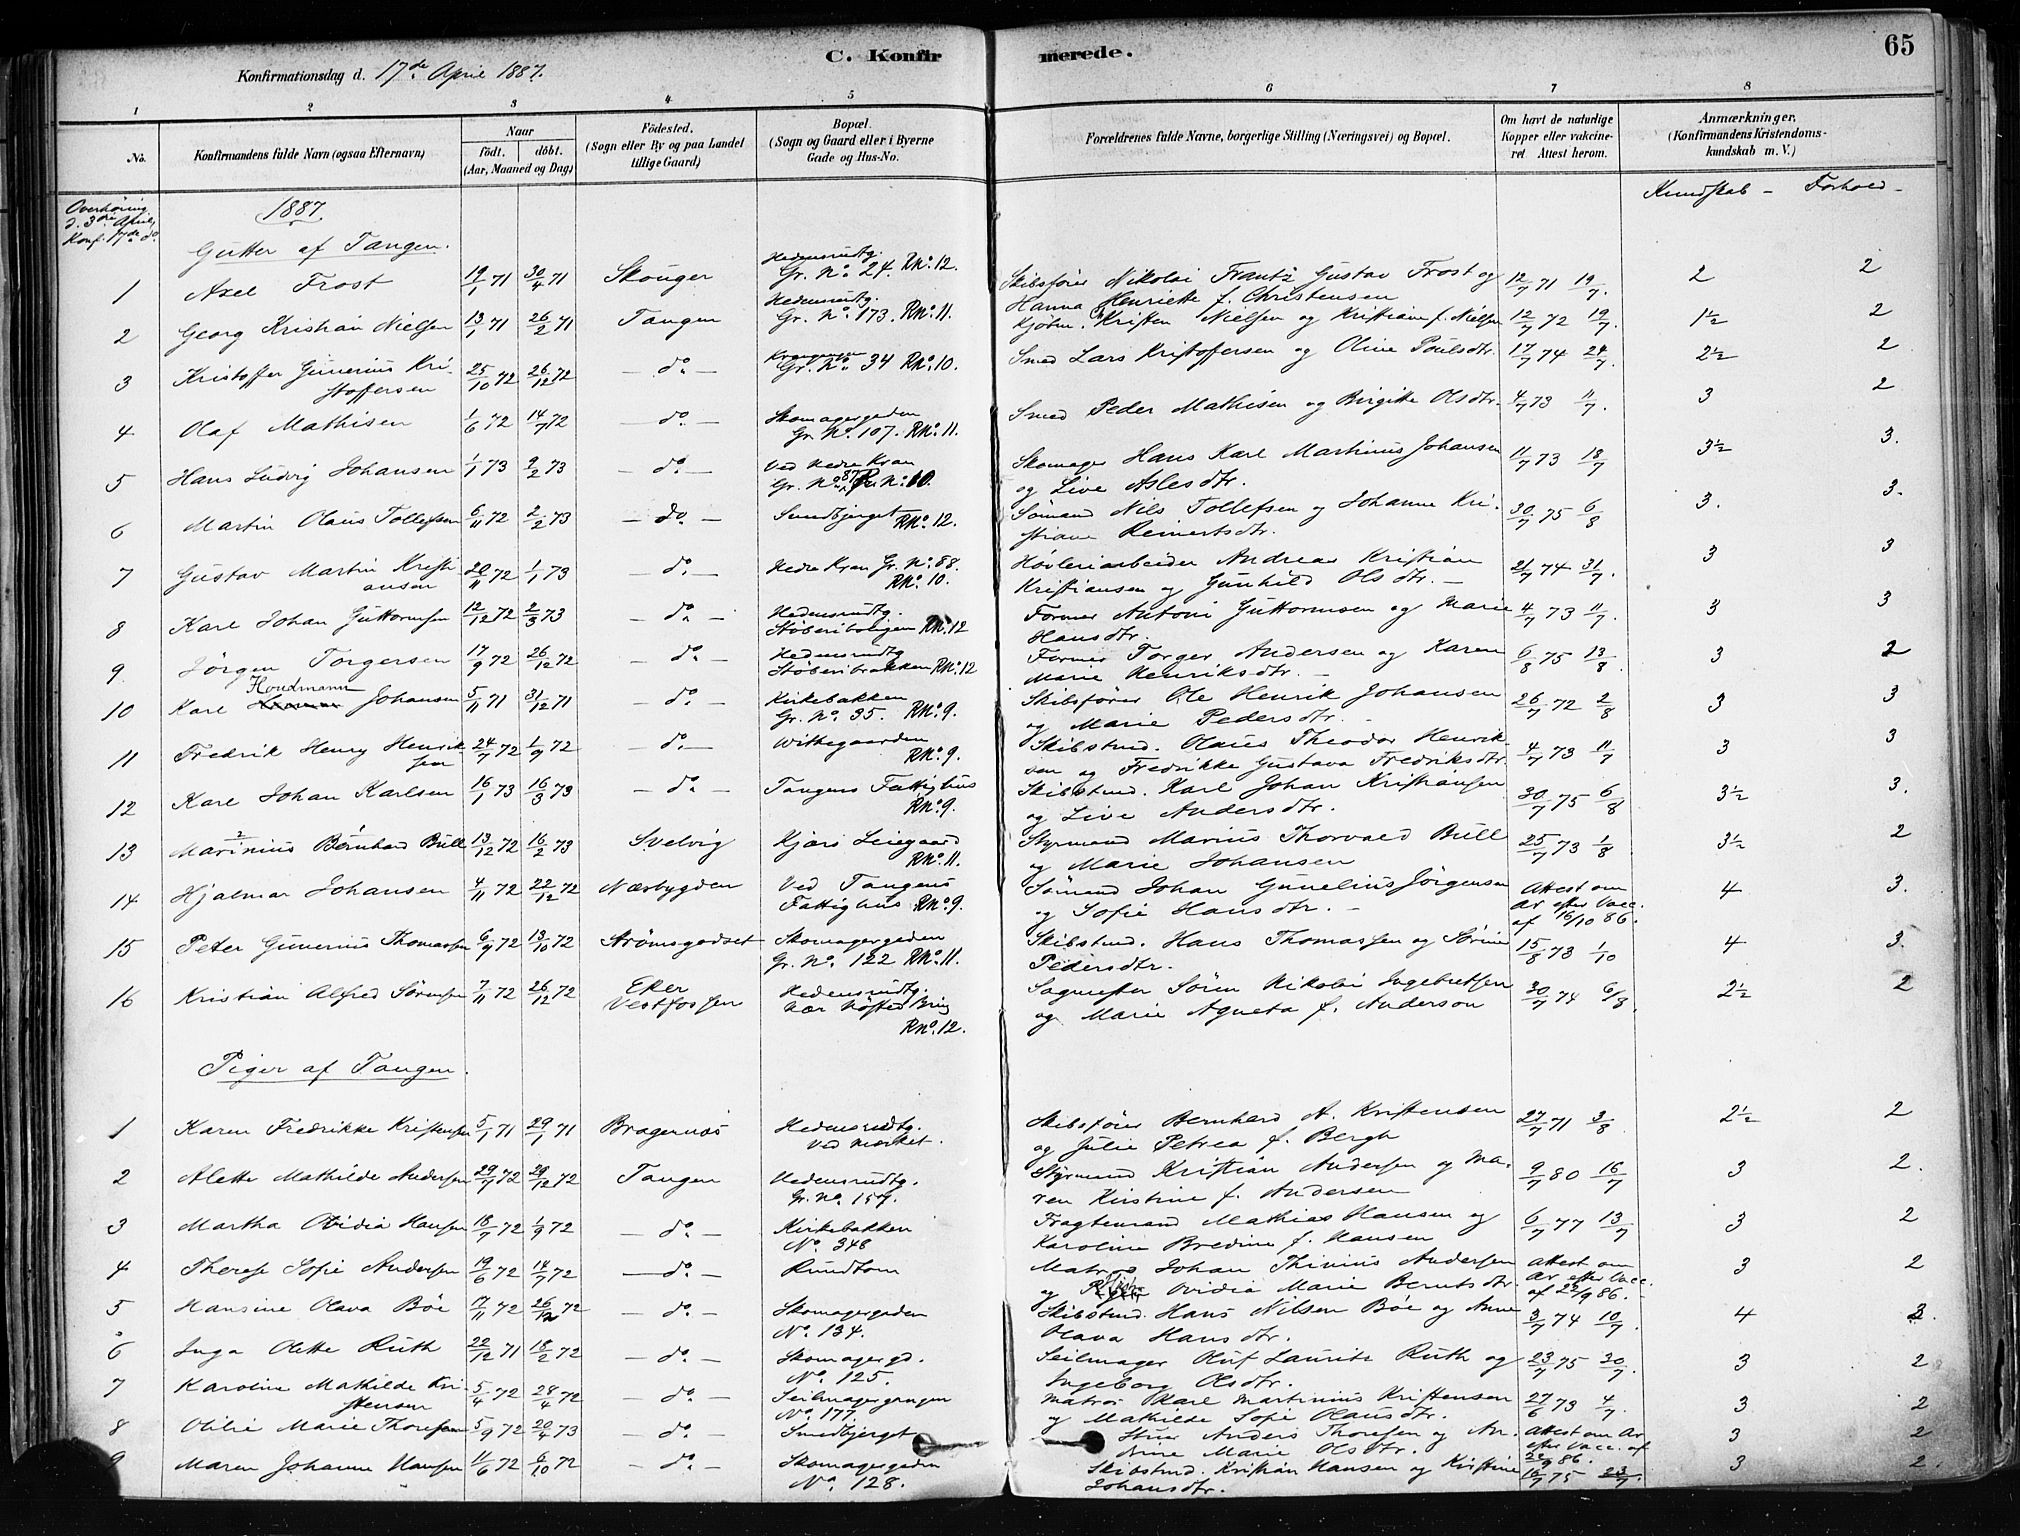 C. Konfirmerede.
65
Konfirmationsdag d. 17de April 1887.
1 2 3 4 5 6 7 8
No.
Konfirmandens fulde Navn (ogsaa Efternavn)
Naar
födt. döbt.
(Aar, Maaned og Dag)
Födested.
(Sogn eller By og paa Landet
tillige Gaard)
Bopæl.
(Sogn og Gaard eller i Byerne
Gade og Hus-No.
Forældrenes fulde Navne, borgerlige Stilling (Næringsvei) og Bopæl.
Om havt de naturlige
Kopper eller vakcine-
ret. Attest herom.
Anmærkninger.
(Konfirmandens Kristendoms-
kundskab m. V.)
Kundskab - Forhold -
Overhöring
d. 3die April,
Konf. 17de do.
1887.
Gutter af Tangen.
1 Axel Frost 19/1 71 30/4 71 Skouger Hedensrudtg. Gr. No. 24. RNo. 12. Skibsförer Nikolai Frantz Gustav Frost og Hanna Henriette f. Christensen 12/7 71 19/7. 2 2
2 Georg Kristian Nielsen 13/1 71 26/2 71 Tangen Hedensrudtg. Gr. No. 173. RNo. 11. Kjöbm. Kristen Nielsen og Kristiane f. Nielsen 12/7 72 19/7. 1½ 2
3 Kristoffer Gunerius Kristoffersen 25/10 72 26/12 72 - do. - Gr. No. 34 RNo. 10. Smed Lars Kristoffersen og Oline Poulsdtr. 17/7 74 24/7. 2½ 2
4 Olaf Mathisen 1/6 72 14/7 72 - do. - Skomagergaden Gr. No. 107. RNo. 11. Smed Peder Mathisen og Birgitte Olsdtr. 4/7 73 11/7. 3 2
5 Hans Ludvig Johansen 1/1 73 9/2 73 - do. - Ved Nedre Kran Gr. No. 87 RNo. 10. Skomager Hans Karl Martinius Johansen og Live Aslesdtr. 11/7 73 18/7 3½ 3.
6 Martin Olaus Tollefsen 6/11 72 2/2 73 - do. - Smedbjerget RNo. 12. Sömand Nils Tollefsen og Johanne Kristiane Reinertsdtr. 30/7 75 6/8 3. 3.
7 Gustav Martin Kristiansen 20/11 72 1/1 73 - do. - Nedre Kran Gr. No. 88. RNo. 10. Hövleriarbeider Andreas Kristian Kristiansen og Gunhild Olsdtr. - 21/7 74 31/7. 3 3
8 Karl Johan Guttormsen 12/12 72 2/3 73 - do. - Hedensrudtg. Støberiboligen RNo. 12 Former Antoni Guttormsen og Marie Hansdtr. 4/7 73 11/7. 3 3
9 Jörgen Torgersen 17/9 72 26/12 72 - do. - Hedensrudtg Støberibrakken RNo. 12 Former Torger Andersen og Karen Marie Henriksdtr. - 6/8 75 13/8. 3 2
10 Karl Houdmann Johansen 5/11 71 31/12 71 - do. - Kirkebakken Gr. No. 35. RNo. 9. Skibsförer Ole Henrik Johansen og Marie Pedersdtr. - 26/7 72 2/8 3 3
11 Fredrik Henry Henriksen 24/7 72 1/9 72 - do. - Wittegaarden RNo. 9. Skibstmd. Olaus Theodor Henriksen og Fredrikke Gustava Fredriksdtr. 4/7 73 11/7 3 3
12 Karl Johan Karlsen 16/1 73 16/3 73 - do. - Tangens Fattighus RNo. 9. Skibstmd. Karl Johan Kristiansen og Live Andersdtr. 30/7 75 6/8 3½ 3.
13 Marinius Bernhard Bull 13/12 72 16/2 73 Svelvig Kjærs Leiegaard RNo. 11. Styrmand Marius Thorvald Bull og Marie Johansen 25/7 73 1/8 3½ 2
14 Hjalmar Johansen 4/11 72 22/12 72 Næsbygden Ved Tangens Fattighus RNo. 9. Sömand Johan Gunelius Jörgensen og Sofie Hansdtr. - Attest om Ar efter Vacc. af 16/10 86. 4 3.
15 Peter Gunerius Thomassen 6/9 72 13/10 72 Strömsgodset Skomagergaden Gr. No. 122 RNo. 11. Skibstmd. Hans Thomassen og Sörine Pedersdtr. 15/8 73 1/10 4 3.
16 Kristian Alfred Sörensen 7/11 72 26/12 72 Eker Vestfossen Hedensrudtg. nær Nøsted Brug RNo. 12. Sagmester Sören Nikolai Ingebretsen og Marie Agneta f. Anderson 30/7 74 6/3. 2½ 2
Piger af Tangen.
1 Karen Fredrikke Kristensen 5/1 71 29/1 71 Bragernæs Hedensrudtg. ved Mærket. Skibsförer Bernhard A. Kristensen og Julie Petrea f. Bergh 27/7 71 3/8 2½ 2
2 Alette Mathilde Andersen 29/7 72 29/12 72 Tangen Hedensrudtg. Gr. No. 157. Styrmand Kristian Andersen og Maren Kirstine f. Andersen 9/7 80 16/7 3 2.
3 Martha Ovidia Hansen 18/7 72 1/9 72 - do. - Kirkebakken No. 348 Fragtemand Mathias Hansen og Karoline Bredine f. Hansen 6/7 77 13/7 3 2
4 Therese Sofie Andersen 19/6 72 14/7 72 - do. - Rundtom Matros Johan Thinius Andersen og Ovidia Marie Berntsdtr. Attest om Ar efter Vacc. af 22/9 86. 3 2
5 Hansine Olava Böe 17/11 72 26/12 72 - do. - Skomagergaden No. 134. Skibstmd. Hans Nilsen Böe og Anne Olava Hansdtr. 3/7 74 10/7. 4 3.
6 Inga Olette Ruth 22/12 71 18/2 72 - do. - Skomagergd. No. 125. Seilmager Oluf Lauritz Ruth og Ingeborg Olsdtr. 23/7 75 30/7. 3 2
7 Karoline Mathilde Kristensen 5/4 72 28/4 72 - do. - Seilmagergangen No. 177. Matros Karl Martinius Kristensen og Mathilde Sofie Olausdtr. 27/6 73 4/7. 3 2
8 Otilie Marie Thoresen 5/9 72 20/4 73 - do. - Smedbjerget Stuer Anders Thoresen og Anine Marie Olsdtr. Attest om Ar efter Vacc. af 22/9 86. 3 2
9 Maren Johanne Hansen 11/6 72 6/10 72 - do. - Skomagergaden No. 128. Skibstmd. Kristian Hansen og Kirstine Johansdtr. 16/7 75 23/7. 3 2.